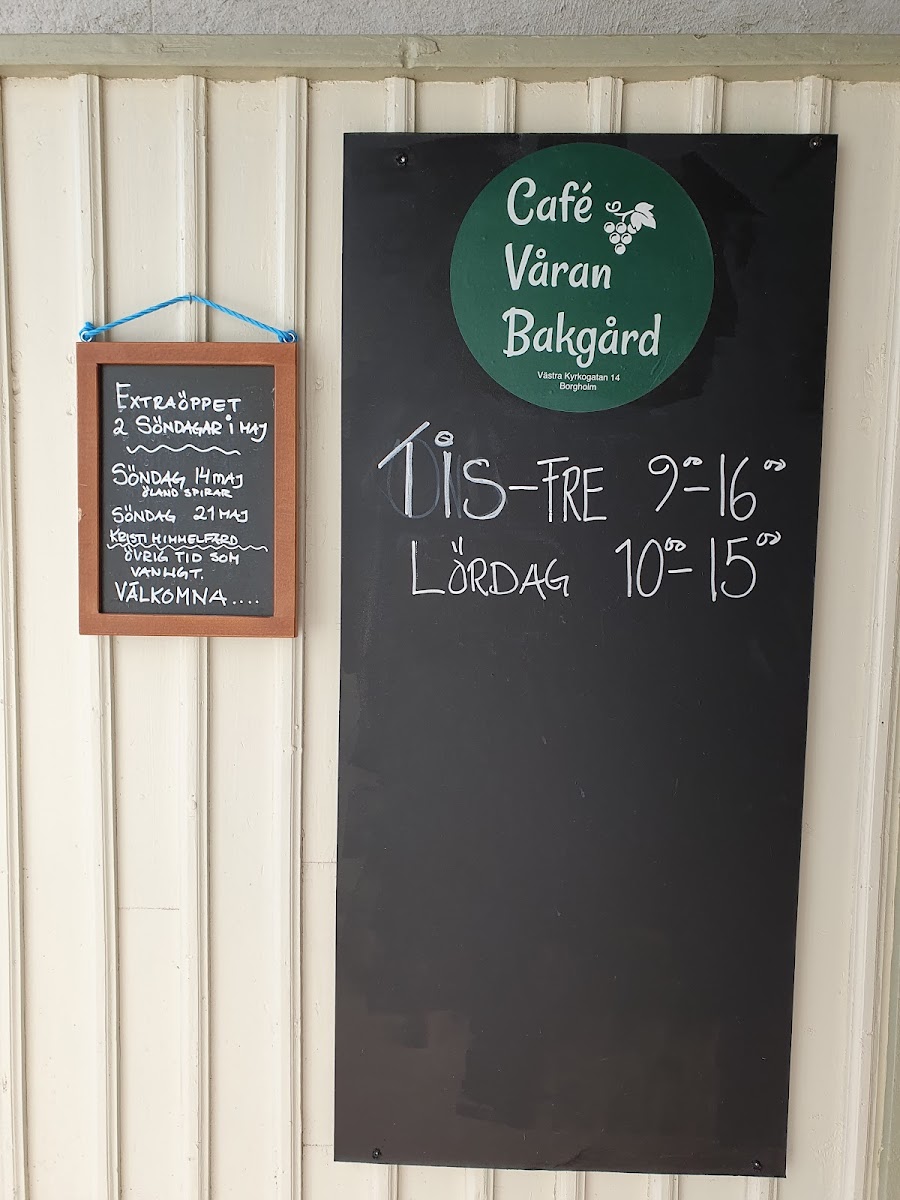 EXTRAÖPPET
2 SÖNDAGAR i MAJ
SÖNDAG 14 MAJ
ÖLAND SPIRAR
SÖNDAG 21 MAJ
KRISTI HIMMELFÄRD
ÖVRIG TID SOM
VANLIGT.
VÄLKOMNA....
Café
Våran
Bakgård
Västra Kyrkogatan 14
Borgholm
TiS-FRE 9⁰⁰-16⁰⁰
LÖRDAG 10⁰⁰-15⁰⁰